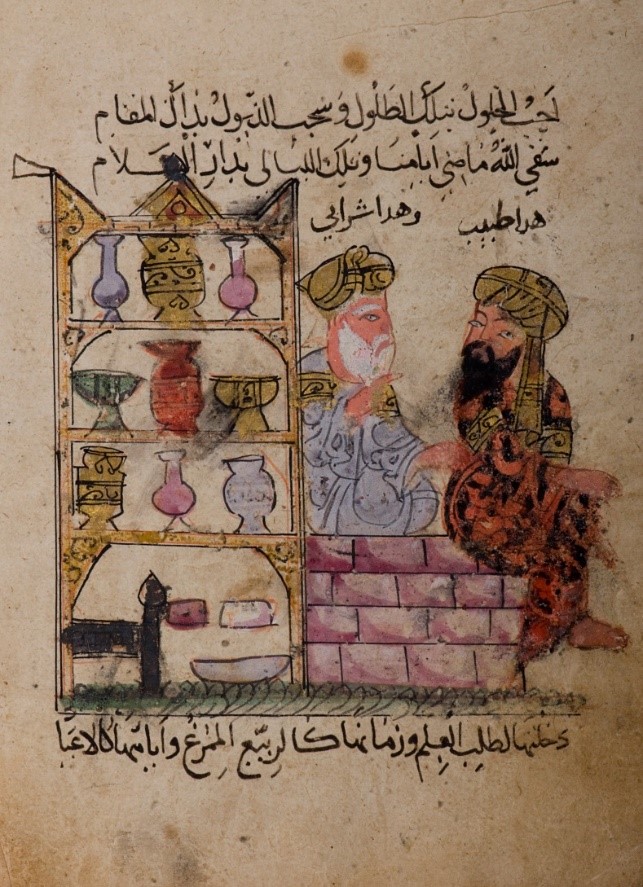 احب الحلول بتلك الطلول وسحب الذيول بذاك المقام
سقى الله ماضي ايامنا وتلك الليالي بدار السلام
هدا طبيب وهدا شرابي
دخلتها لطلب العلم وزمانها كالربيع الممرع وايامها